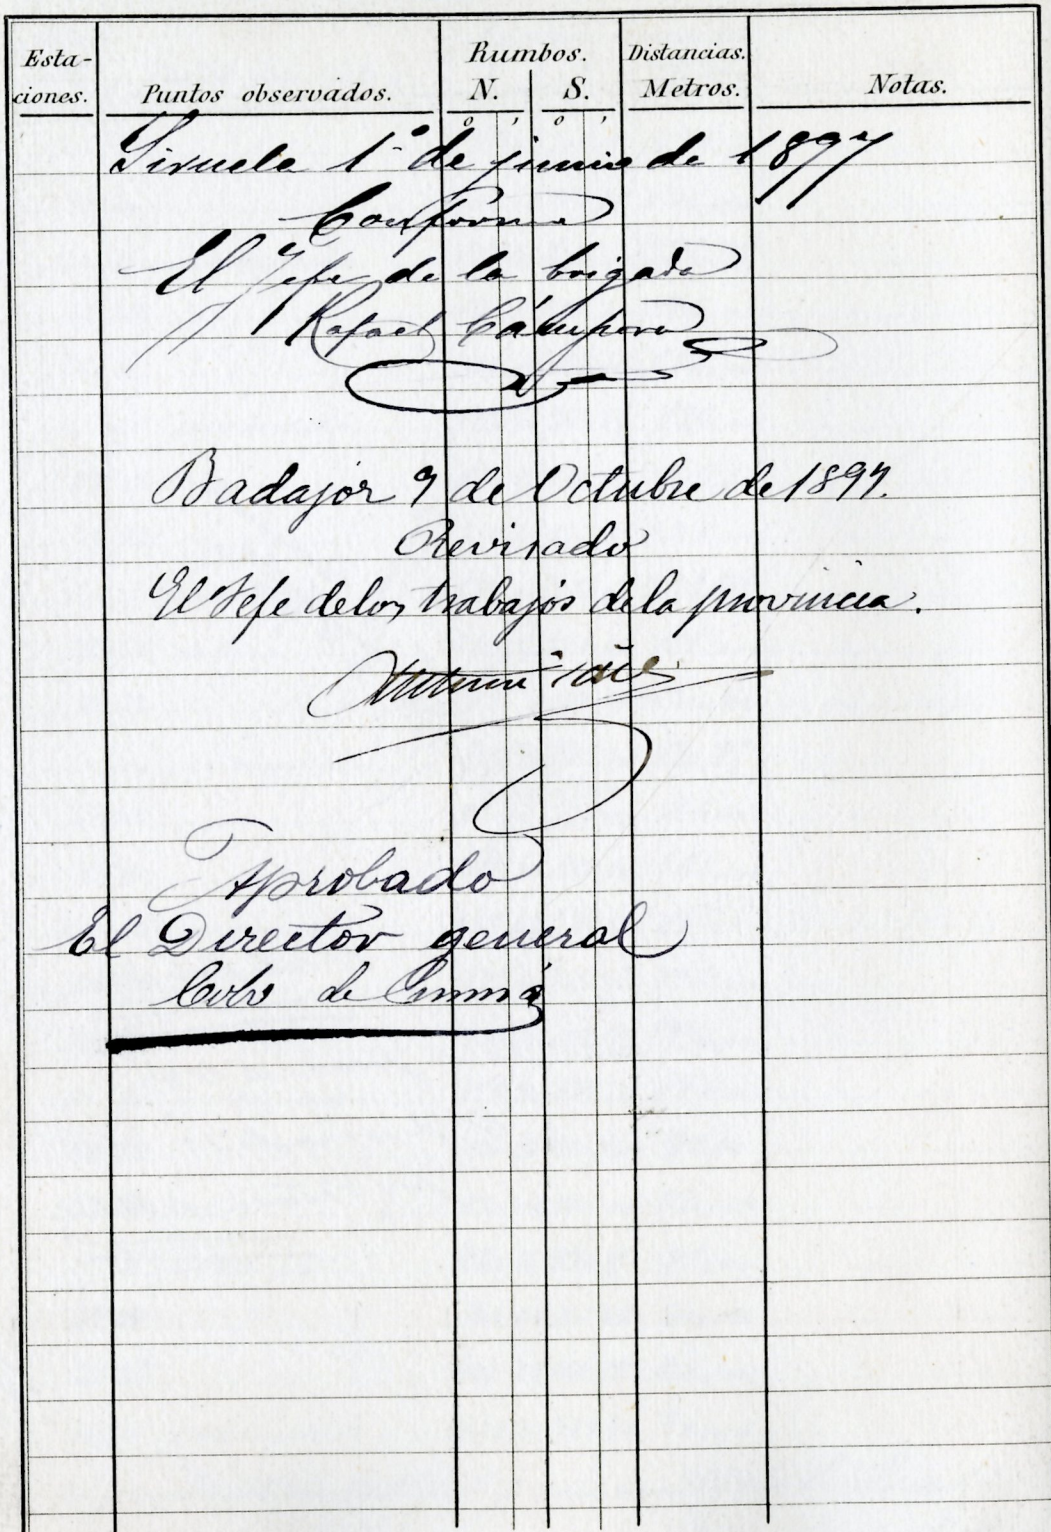 Esta-
ciones.
Puntos observados.
Rumbos.
N. S.
º ' º '
Distancias.
Metros.
Notas.
Siruela 1º de junio de 1897
Conforme
El Jefe de la brigada
Rafael Cámpora
Badajoz 9 de Octubre de 1897.
Revisado
El Jefe de los trabajos de la provincia.
Antonio
Aprobado
El Director general
Cobo de Guzmán